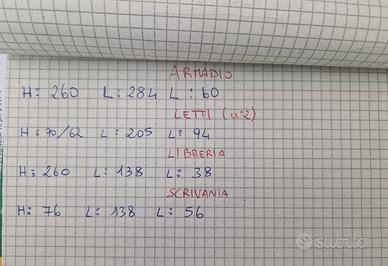 ARMADIO
H: 260 L: 284 L: 60
LETTI (n°2)
H: 70/62 L: 205 L: 94
LIBRERIA
H: 260 L: 138 L: 38
SCRIVANIA
H: 76 L: 138 L: 56
subito